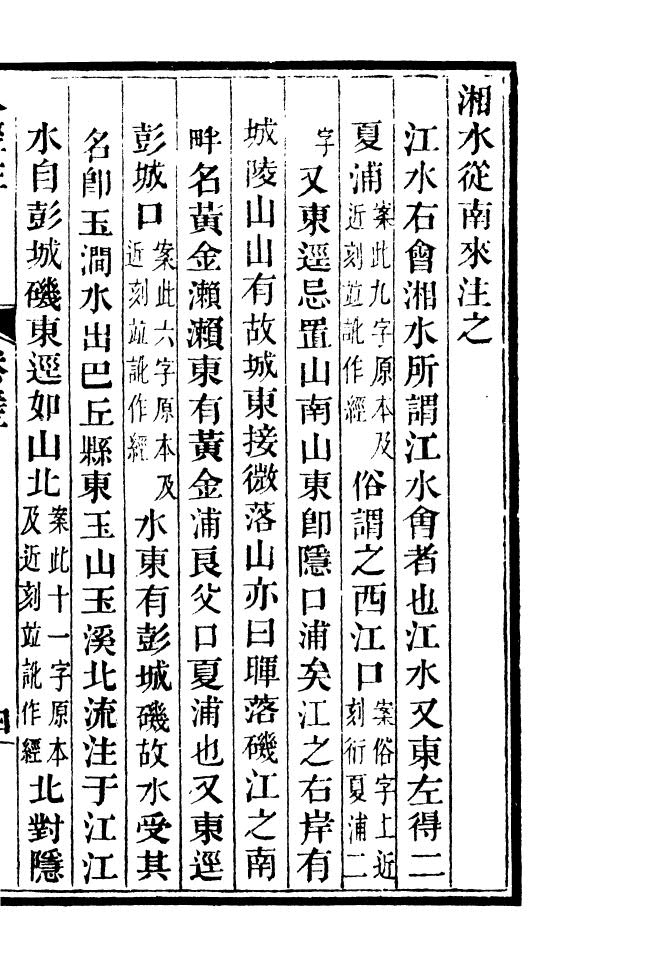 湘水從南來注之
江水右會湘水所謂江水會者也江水又東左得二
夏浦案此九字原本及近刻竝訛作經俗謂之西江口案俗字上近刻衍夏浦二
字又東逕忌置山南山東卽隱口浦矣江之右岸有
城陵山山有故城東接微落山亦曰暉落磯江之南
畔名黃金瀨瀨東有黃金浦良父口夏浦也又東逕
彭城口案此六字原本及近刻竝訛作經水東有彭城磯故水受其
名卽玉澗水出巴丘縣東玉山玉溪北流注于江江
水自彭城磯東逕如山北案此十一字原本及近刻竝訛作經北對隱